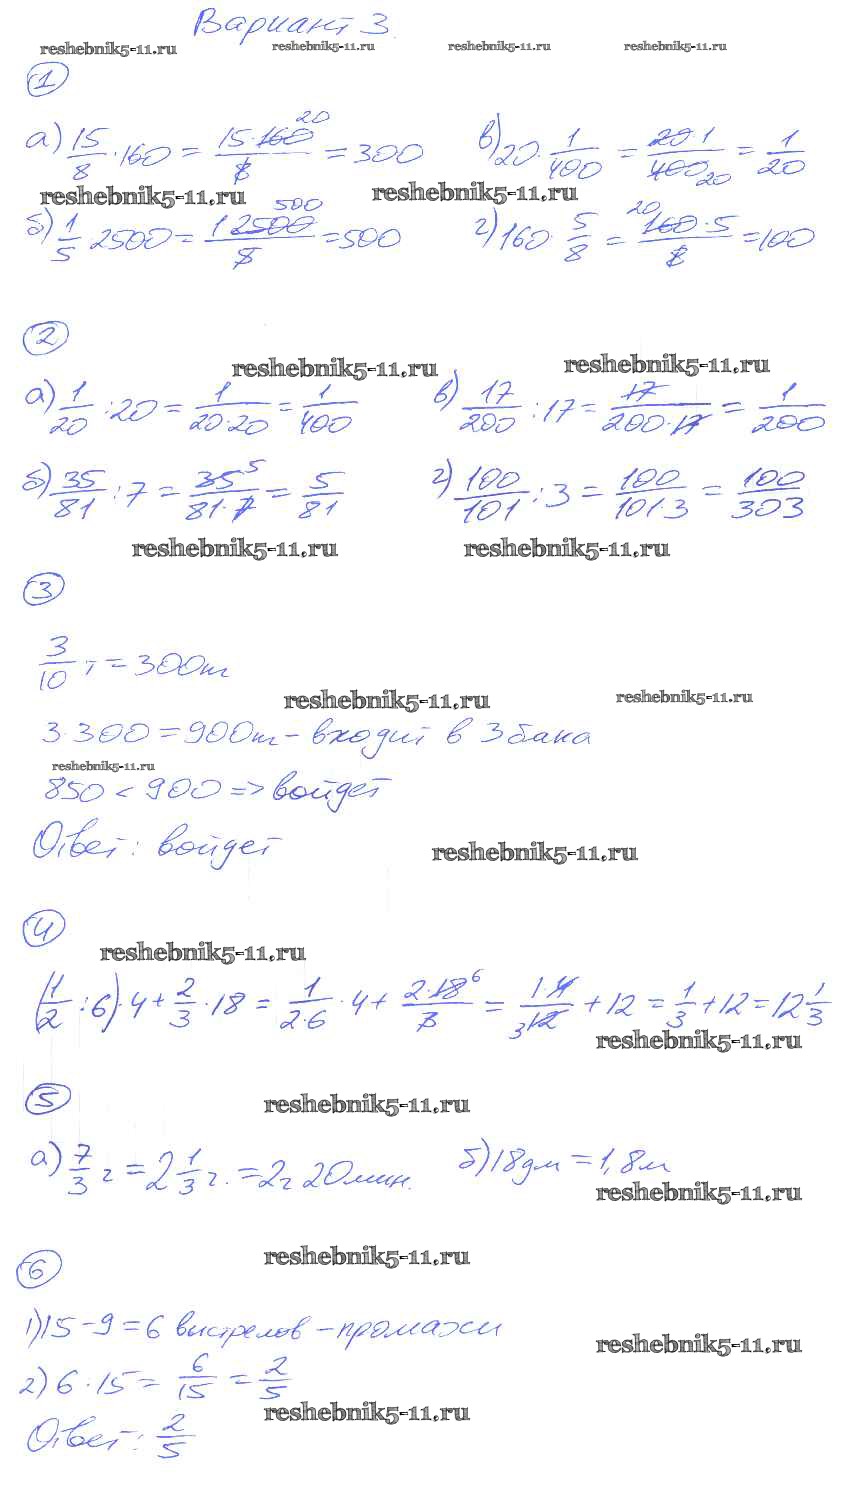 Вариант 3.
reshebnik5-11.ru reshebnik5-11.ru reshebnik5-11.ru reshebnik5-11.ru
1
а) 15/8 · 160 = 15·160/8 20 = 300 в) 20 · 1/400 = 20·1/400 20 = 1/20
reshebnik5-11.ru reshebnik5-11.ru
б) 1/5 2500 = 1 2500/5 500 = 500 г) 160 · 5/8 = 20 160·5/8 = 100
2
reshebnik5-11.ru reshebnik5-11.ru
а) 1/20 : 20 = 1/20·20 = 1/400 в) 17/200 : 17 = 17/200·17 = 1/200
б) 35/81 : 7 = 35 5/81·7 = 5/81 г) 100/101 : 3 = 100/101·3 = 100/303
reshebnik5-11.ru reshebnik5-11.ru
3
3/10 т = 300 т
reshebnik5-11.ru reshebnik5-11.ru
3·300 = 900 т – входит в 3 бака
reshebnik5-11.ru
850 < 900 => войдет
Ответ: войдет
reshebnik5-11.ru
4
reshebnik5-11.ru
(1/2 : 6) · 4 + 2/3 · 18 = 1/2·6 · 4 + 2·18 6/3 = 1·4/3 12 + 12 = 1/3 + 12 = 12 1/3
reshebnik5-11.ru
5
reshebnik5-11.ru
а) 7/3 ч = 2 1/3 ч. = 2ч 20 мин. б) 18 дм = 1,8 м
reshebnik5-11.ru
reshebnik5-11.ru
6
1) 15 – 9 = 6 выстрелов – промахи
reshebnik5-11.ru
2) 6 · 15 = 6/15 = 2/5
reshebnik5-11.ru
Ответ: 2/5